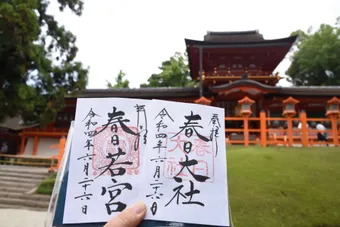 奉拝
春日大社
令和四年六月二十六日
奉拝
春日若宮
令和四年六月二十六日